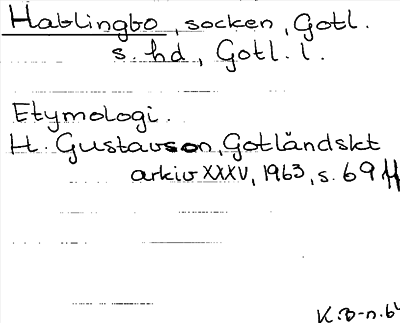 Hablingbo, socken, Gotl.
s. hd, Gotl. l.
Etymologi.
H. Gustavson, Gotländskt
arkiv XXXV, 1963, s. 69 ff